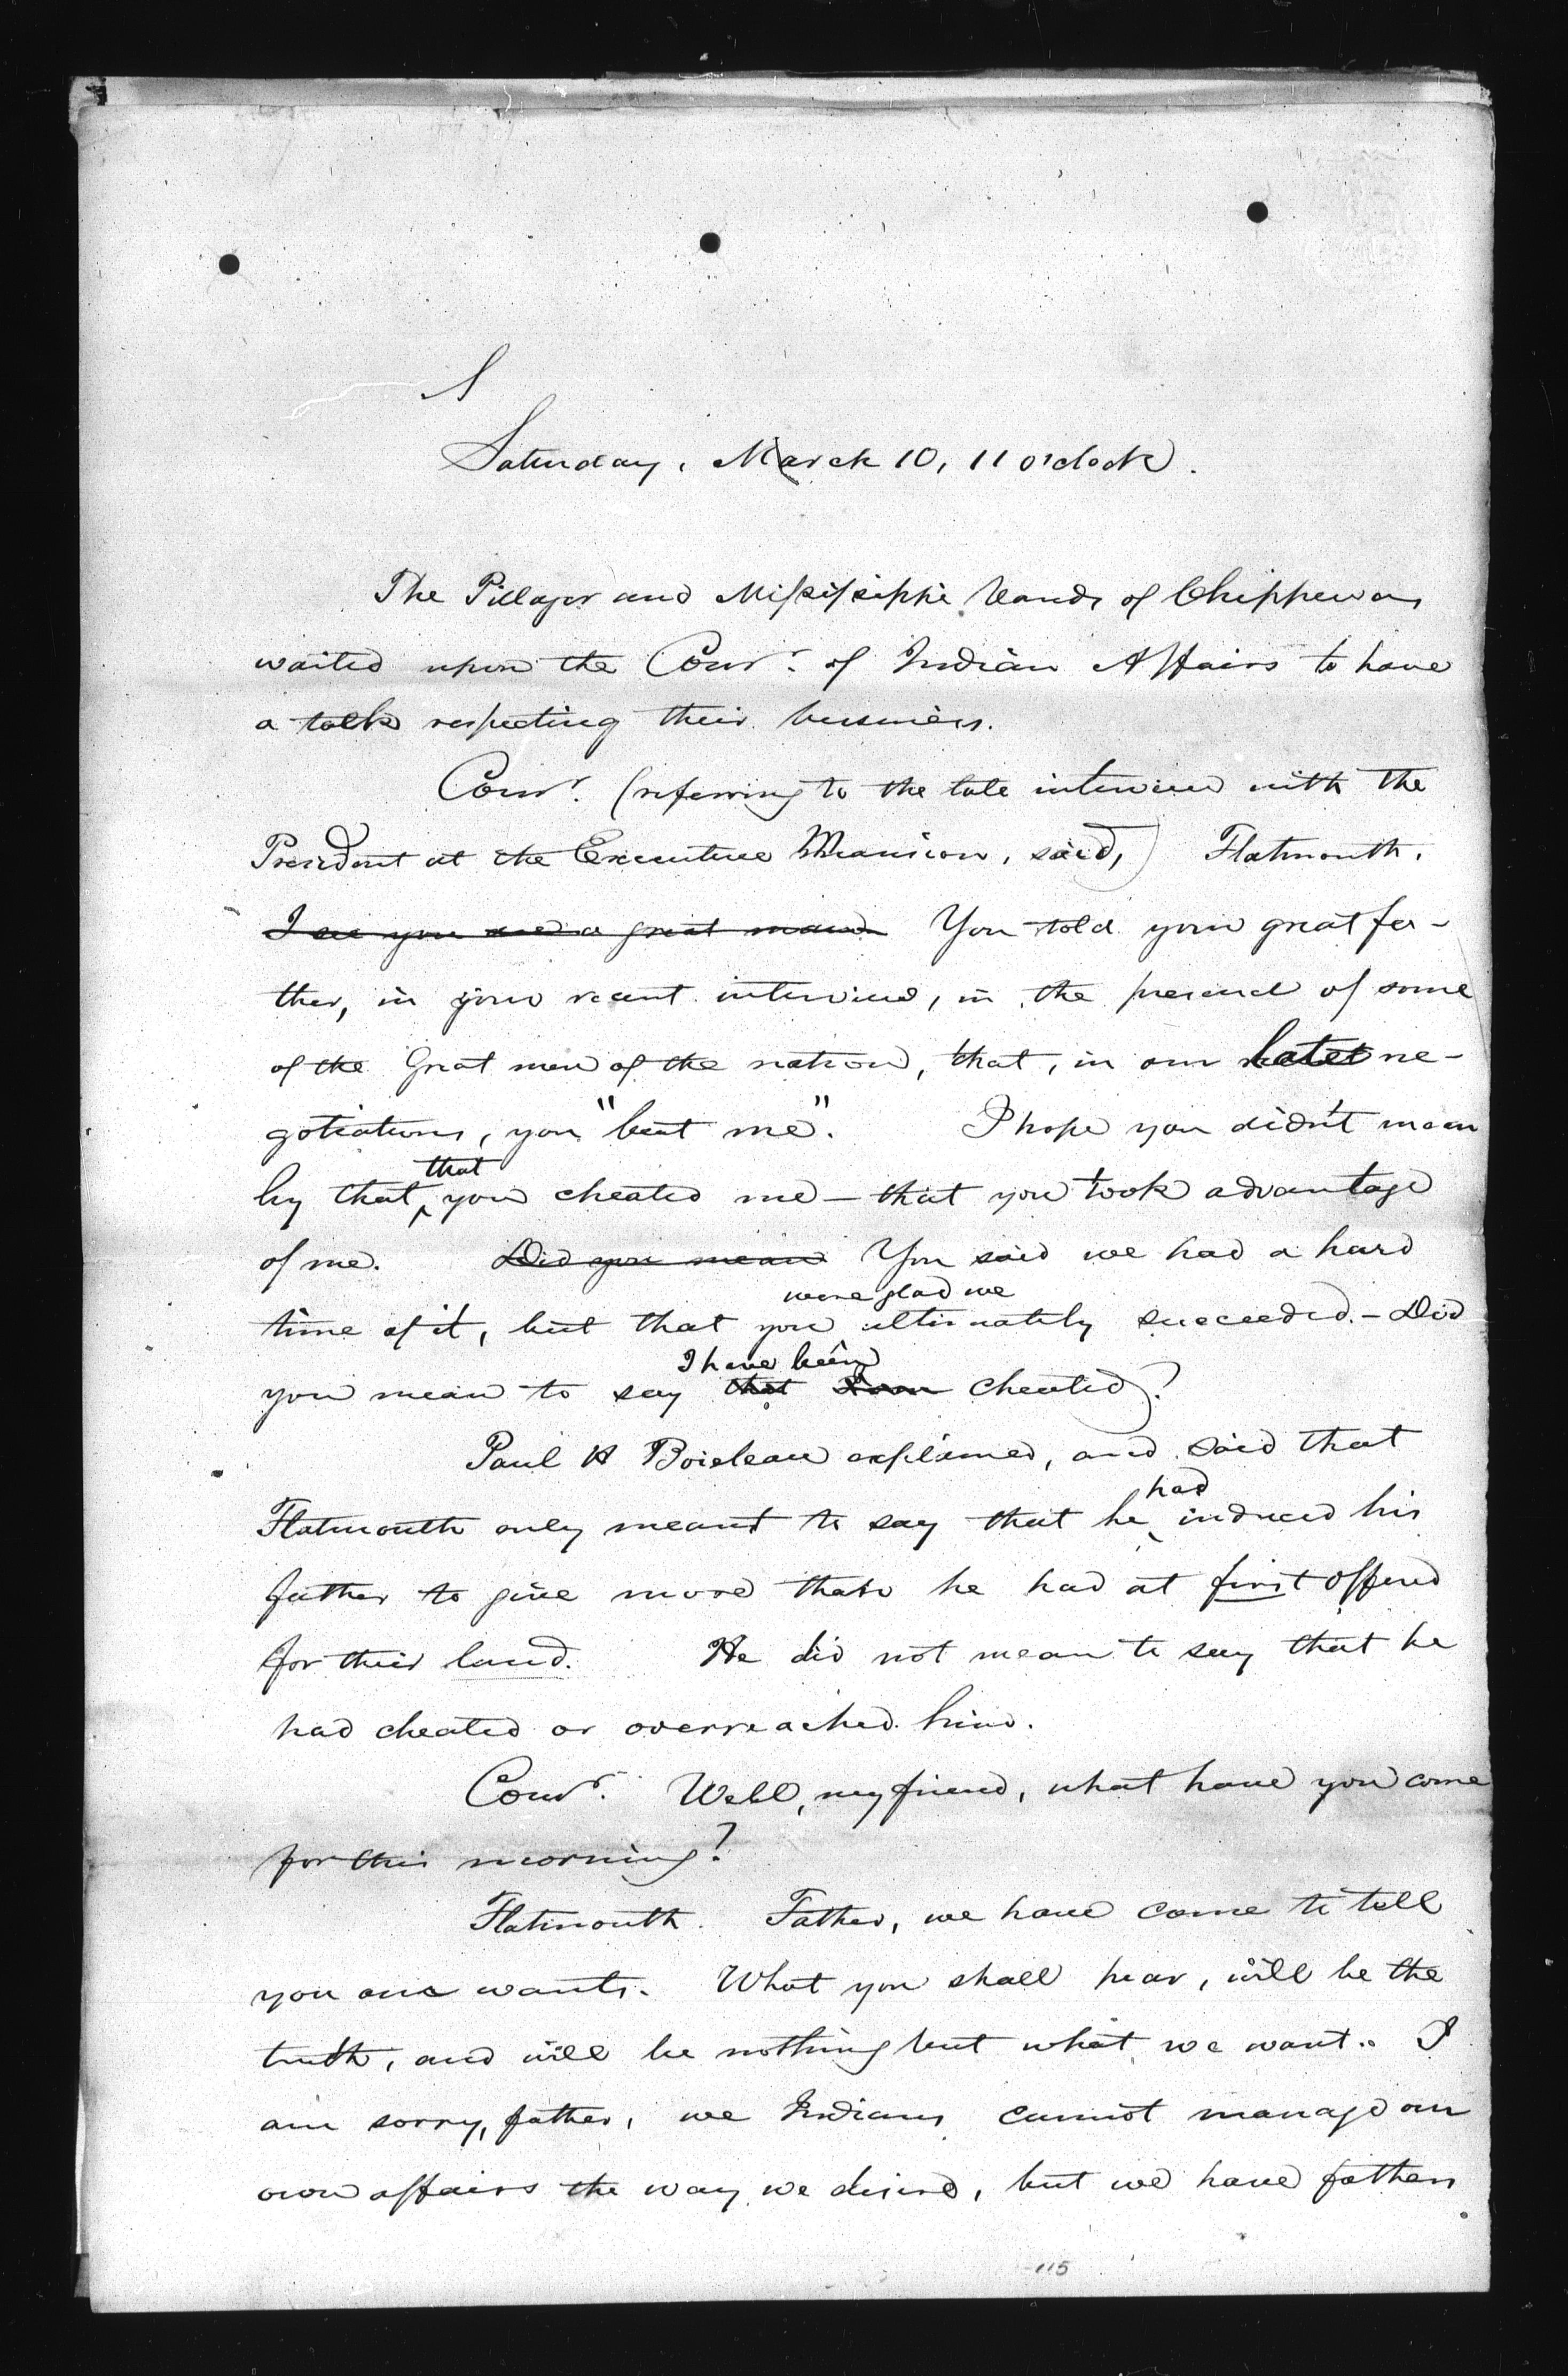 S
Saturday, March 10, 11 o'clock.
The Pillager and Mississippi bands of Chippewas
waited upon the Comr. of Indian Affairs to have
a talk respecting their business.
Comr. (referring to the late interview with the
President at the Executive Mansion, said,) Flatmouth,
I see you are a great man. You told your great fa-
ther, in your recent interview, in the presence of some
of the Great men of the nation, that, in our late ne-
gotiations, you "beat me". I hope you didn't mean
by that that you cheated me — that you took advantage
of me. Did you mean You said we had a hard
time of it, but that you were glad we ultimately succeeded. — Did
you mean to say that I have been cheated?
Paul H Boileau explained, and said that
Flatmouth only meant to say that he had induced his
father to give more than he had at first offered
for their land. He did not mean to say that he
had cheated or overreached him.
Comr. Well, my friend, what have you come
for this morning?
Flatmouth. Father, we have come to tell
you our wants. What you shall hear, will be the
truth, and will be nothing but what we want. I
am sorry, father, we Indians cannot manage our
own affairs the way we desire, but we have fathers
115